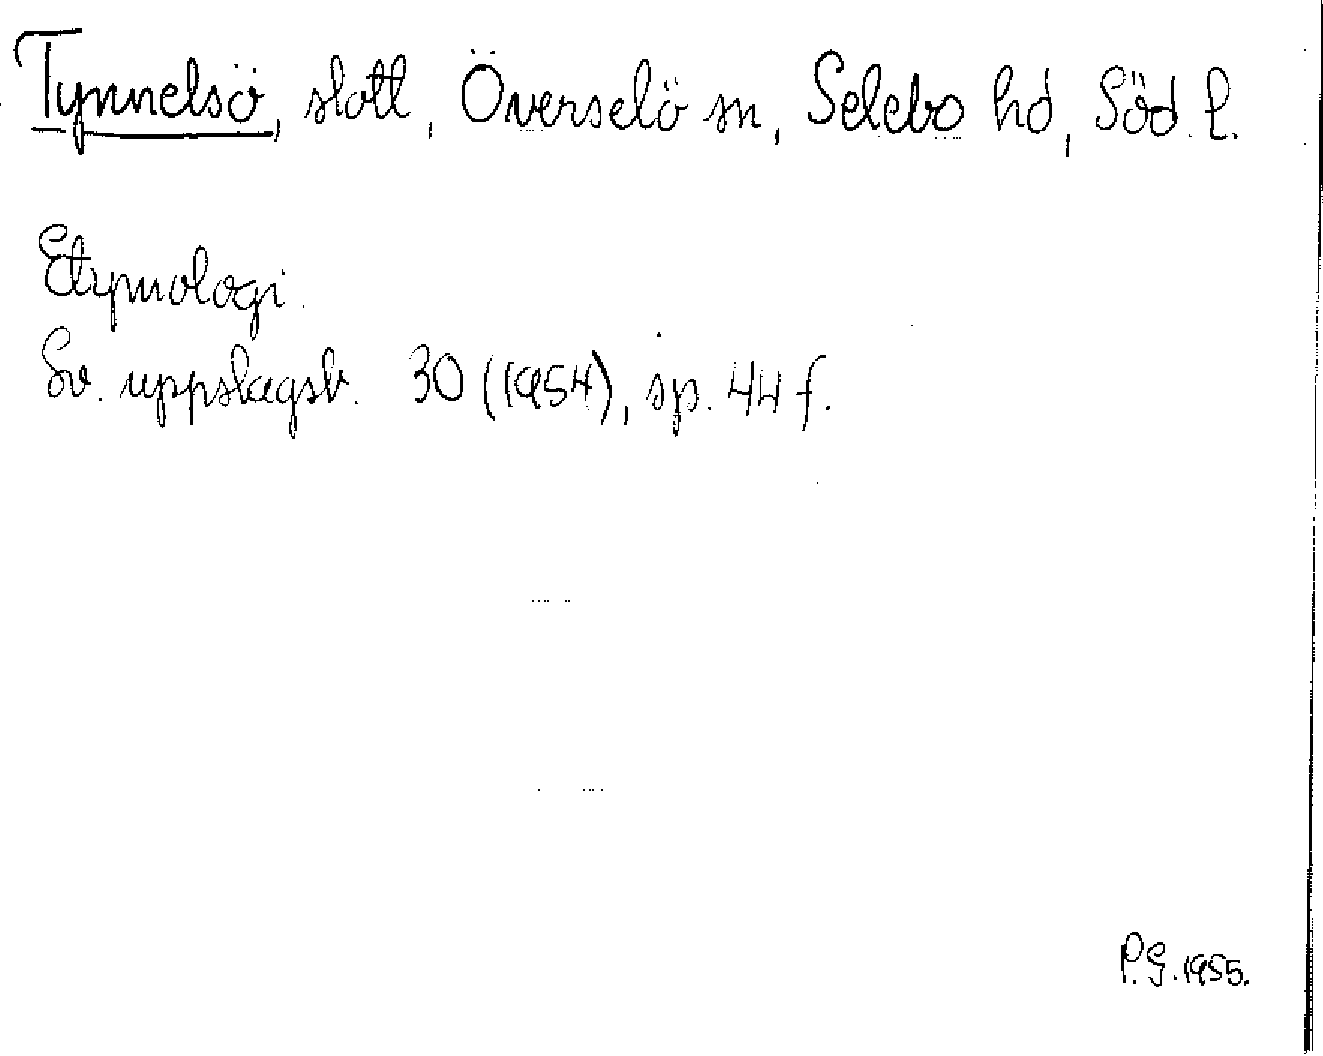 Tynnelsö, slott, Överselö sn, Selebo hd, Söd. l.
Etymologi.
Sv. uppslagsb. 30 (1954), sp. 44 f.
P.G. 1955.